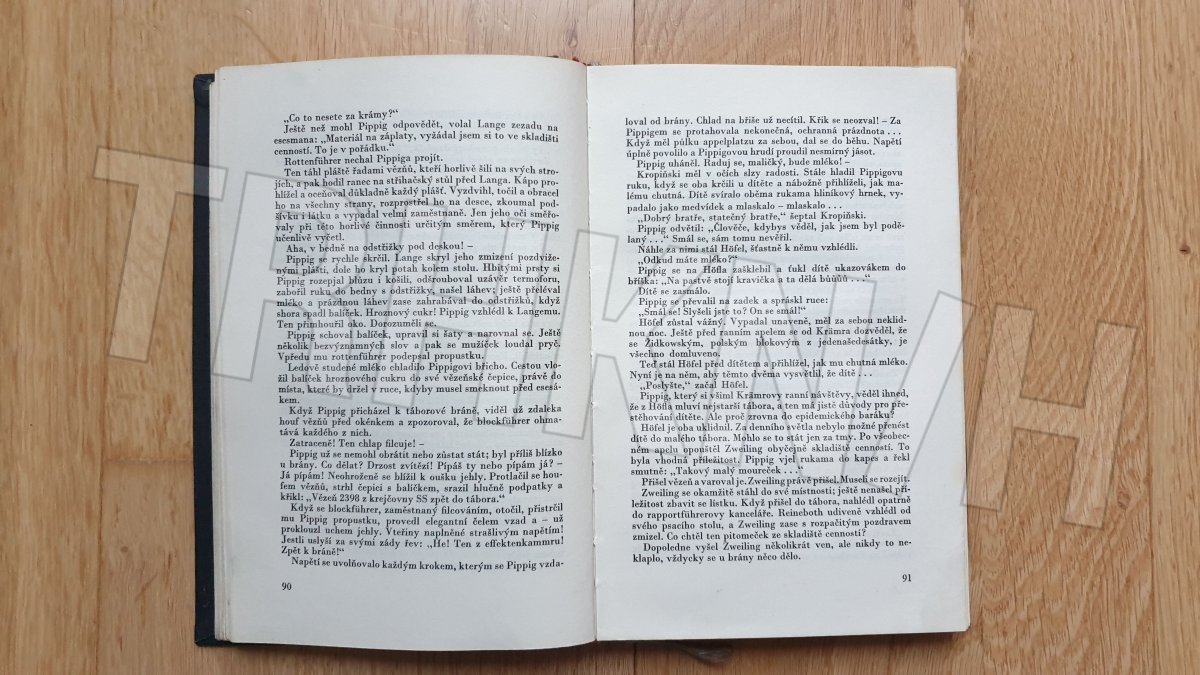 „Co to nesete za krámy?“
Ještě než mohl Pippig odpovědět, volal Lange zezadu na
esesmana: „Materiál na záplaty, vyžádal jsem si to ve skladišti
cenností. To je v pořádku.“
Rottenführer nechal Pippiga projít.
Ten táhl pláště řadami vězňů, kteří horlivě šili na svých stro-
jích, a pak hodil ranec na stříhačský stůl před Langa. Kápo pro-
hlížel a oceňoval důkladně každý plášť. Vyzdvihl, točil a obracel
ho na všechny strany, rozprostřel ho na desce, zkoumal pod-
šívku i látku a vypadal velmi zaměstnaně. Jen jeho oči směřo-
valy při této horlivé činnosti určitým směrem, který Pippig
učenlivě vyčetl.
Aha, v bedně na odstřižky pod deskou! –
Pippig se rychle skrčil. Lange skryl jeho zmizení pozdviže-
nými plášti, dole ho kryl potah kolem stolu. Hbitými prsty si
Pippig rozepjal blůzu i košili, odšrouboval uzávěr termoforu,
zabořil ruku do bedny s odstřižky, našel láhev; ještě přeléval
mléko a prázdnou láhev zase zahrabával do odstřižků, když
shora spadl balíček. Hroznový cukr! Pippig vzhlédl k Langemu.
Ten přimhouřil oko. Dorozuměli se.
Pippig schoval balíček, upravil si šaty a narovnal se. Ještě
několik bezvýznamných slov a pak se mužíček loudal pryč.
Vpředu mu rottenführer podepsal propustku.
Ledově studené mléko chladilo Pippigovi břicho. Cestou vlo-
žil balíček hroznového cukru do své vězeňské čepice, právě do
místa, které by držel v ruce, kdyby musel smeknout před esesá-
kem.
Když Pippig přicházel k táborové bráně, viděl už zdaleka
houf vězňů před okénkem a zpozoroval, že blockführer ohma-
tává každého z nich.
Zatraceně! Ten chlap filcuje! –
Pippig už se nemohl obrátit nebo zůstat stát; byl příliš blízko
u brány. Co dělat? Drzost zvítězí! Pípáš ty nebo pípám já? –
Já pípám! Neohroženě se blížil k oušku jehly. Protlačil se hou-
fem vězňů, strhl čepici s balíčkem, srazil hlučně podpatky a
křikl: „Vězeň 2398 z krejčovny SS zpět do tábora.“
Když se blockführer, zaměstnaný filcováním, otočil, přistrčil
mu Pippig propustku, provedl elegantní čelem vzad a – už
proklouzl uchem jehly. Vteřiny naplněné strašlivým napětím!
Jestli uslyší za svými zády řev: „He! Ten z effektenkammru!
Zpět k bráně!“
Napětí se uvolňovalo každým krokem, kterým se Pippig vzda-
90
loval od brány. Chlad na břiše už necítil. Křik se neozval! – Za
Pippigem se protahovala nekonečná, ochranná prázdnota . . .
Když měl půlku appelplatzu za sebou, dal se do běhu. Napětí
úplně povolilo a Pippigovou hrudí proudil nesmírný jásot.
Pippig uháněl. Raduj se, maličký, bude mléko! –
Kropiňski měl v očích slzy radosti. Stále hladil Pippigovu
ruku, když se oba krčili u dítěte a nábožně přihlíželi, jak ma-
lému chutná. Dítě svíralo oběma rukama hliníkový hrnek, vy-
padalo jako medvídek a mlaskalo – mlaskalo . . .
„Dobrý bratře, statečný bratře,“ šeptal Kropiňski.
Pippig odvětil: „Člověče, kdybys věděl, jak jsem byl podě-
laný . . .“ Smál se, sám tomu nevěřil.
Náhle za nimi stál Höfel, šťastně k němu vzhlédli.
„Odkud máte mléko?“
Pippig se na Höfla zašklebil a ťukl dítě ukazovákem do
bříška: „Na pastvě stojí kravička a ta dělá búúúú . . .“
Dítě se zasmálo.
Pippig se převalil na zadek a spráskl ruce:
„Smál se! Slyšeli jste to? On se smál!“
Höfel zůstal vážný. Vypadal unaveně, měl za sebou neklid-
nou noc. Ještě před ranním apelem se od Krämra dozvěděl, že
se Židkowským, polským blokovým z jedenašedesátky, je
všechno domluveno.
Teď stál Höfel před dítětem a přihlížel, jak mu chutná mléko.
Nyní je na něm, aby těmto dvěma vysvětlil, že dítě . . .
„Poslyšte,“ začal Höfel.
Pippig, který si všiml Krämrovy ranní návštěvy, věděl ihned,
že z Höfla mluví nejstarší tábora, a ten má jistě důvody pro pře-
stěhování dítěte. Ale proč zrovna do epidemického baráku?
Höfel je oba uklidnil. Za denního světla nebylo možné přenést
dítě do malého tábora. Mohlo se to stát jen za tmy. Po všeobec-
ném apelu opouštěl Zweiling obyčejně skladiště cenností. To
byla vhodná příležitost. Pippig vjel rukama do kapes a řekl
smutně: „Takový malý moureček . . .“
Přišel vězeň a varoval je. Zweiling právě přišel. Museli se rozejít.
Zweiling se okamžitě stáhl do své místnosti; ještě nenašel pří-
ležitost zbavit se lístku. Když přišel do tábora, nahlédl opatrně
do rapportführerovy kanceláře. Reineboth udiveně vzhlédl od
svého psacího stolu, a Zweiling zase s rozpačitým pozdravem
zmizel. Co chtěl ten pitomeček ze skladiště cenností?
Dopoledne vyšel Zweiling několikrát ven, ale nikdy to ne-
klaplo, vždycky se u brány něco dělo.
91